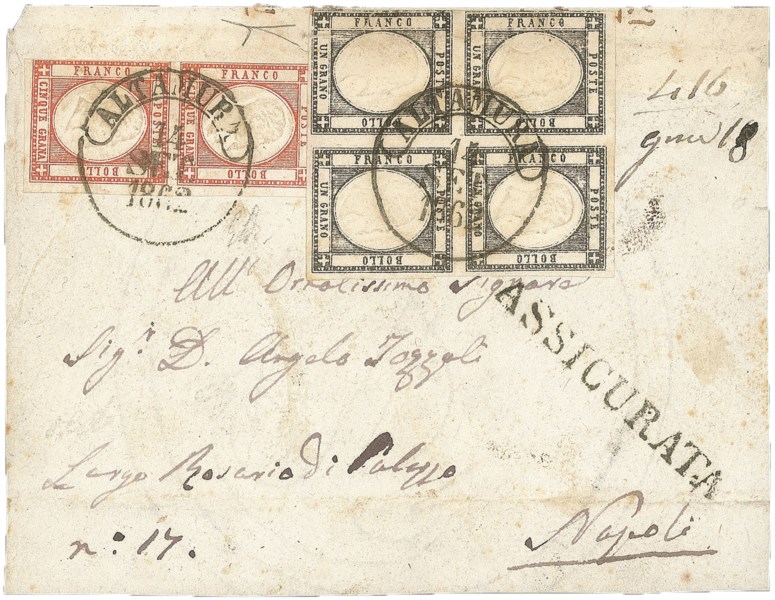 FRANCO POSTE BOLLO CINQUE GRANA
FRANCO POSTE BOLLO CINQUE GRANA
FRANCO POSTE BOLLO UN GRANO
FRANCO POSTE BOLLO UN GRANO
FRANCO POSTE BOLLO UN GRANO
FRANCO POSTE BOLLO UN GRANO
ALTAMURA
14
1862
ALTAMURA
14
186
416
18
All' Ornatissimo Signore
Sig.r D. Angelo
ASSICURATA
Largo Rosario di Palazzo
n.º 17.
Napoli